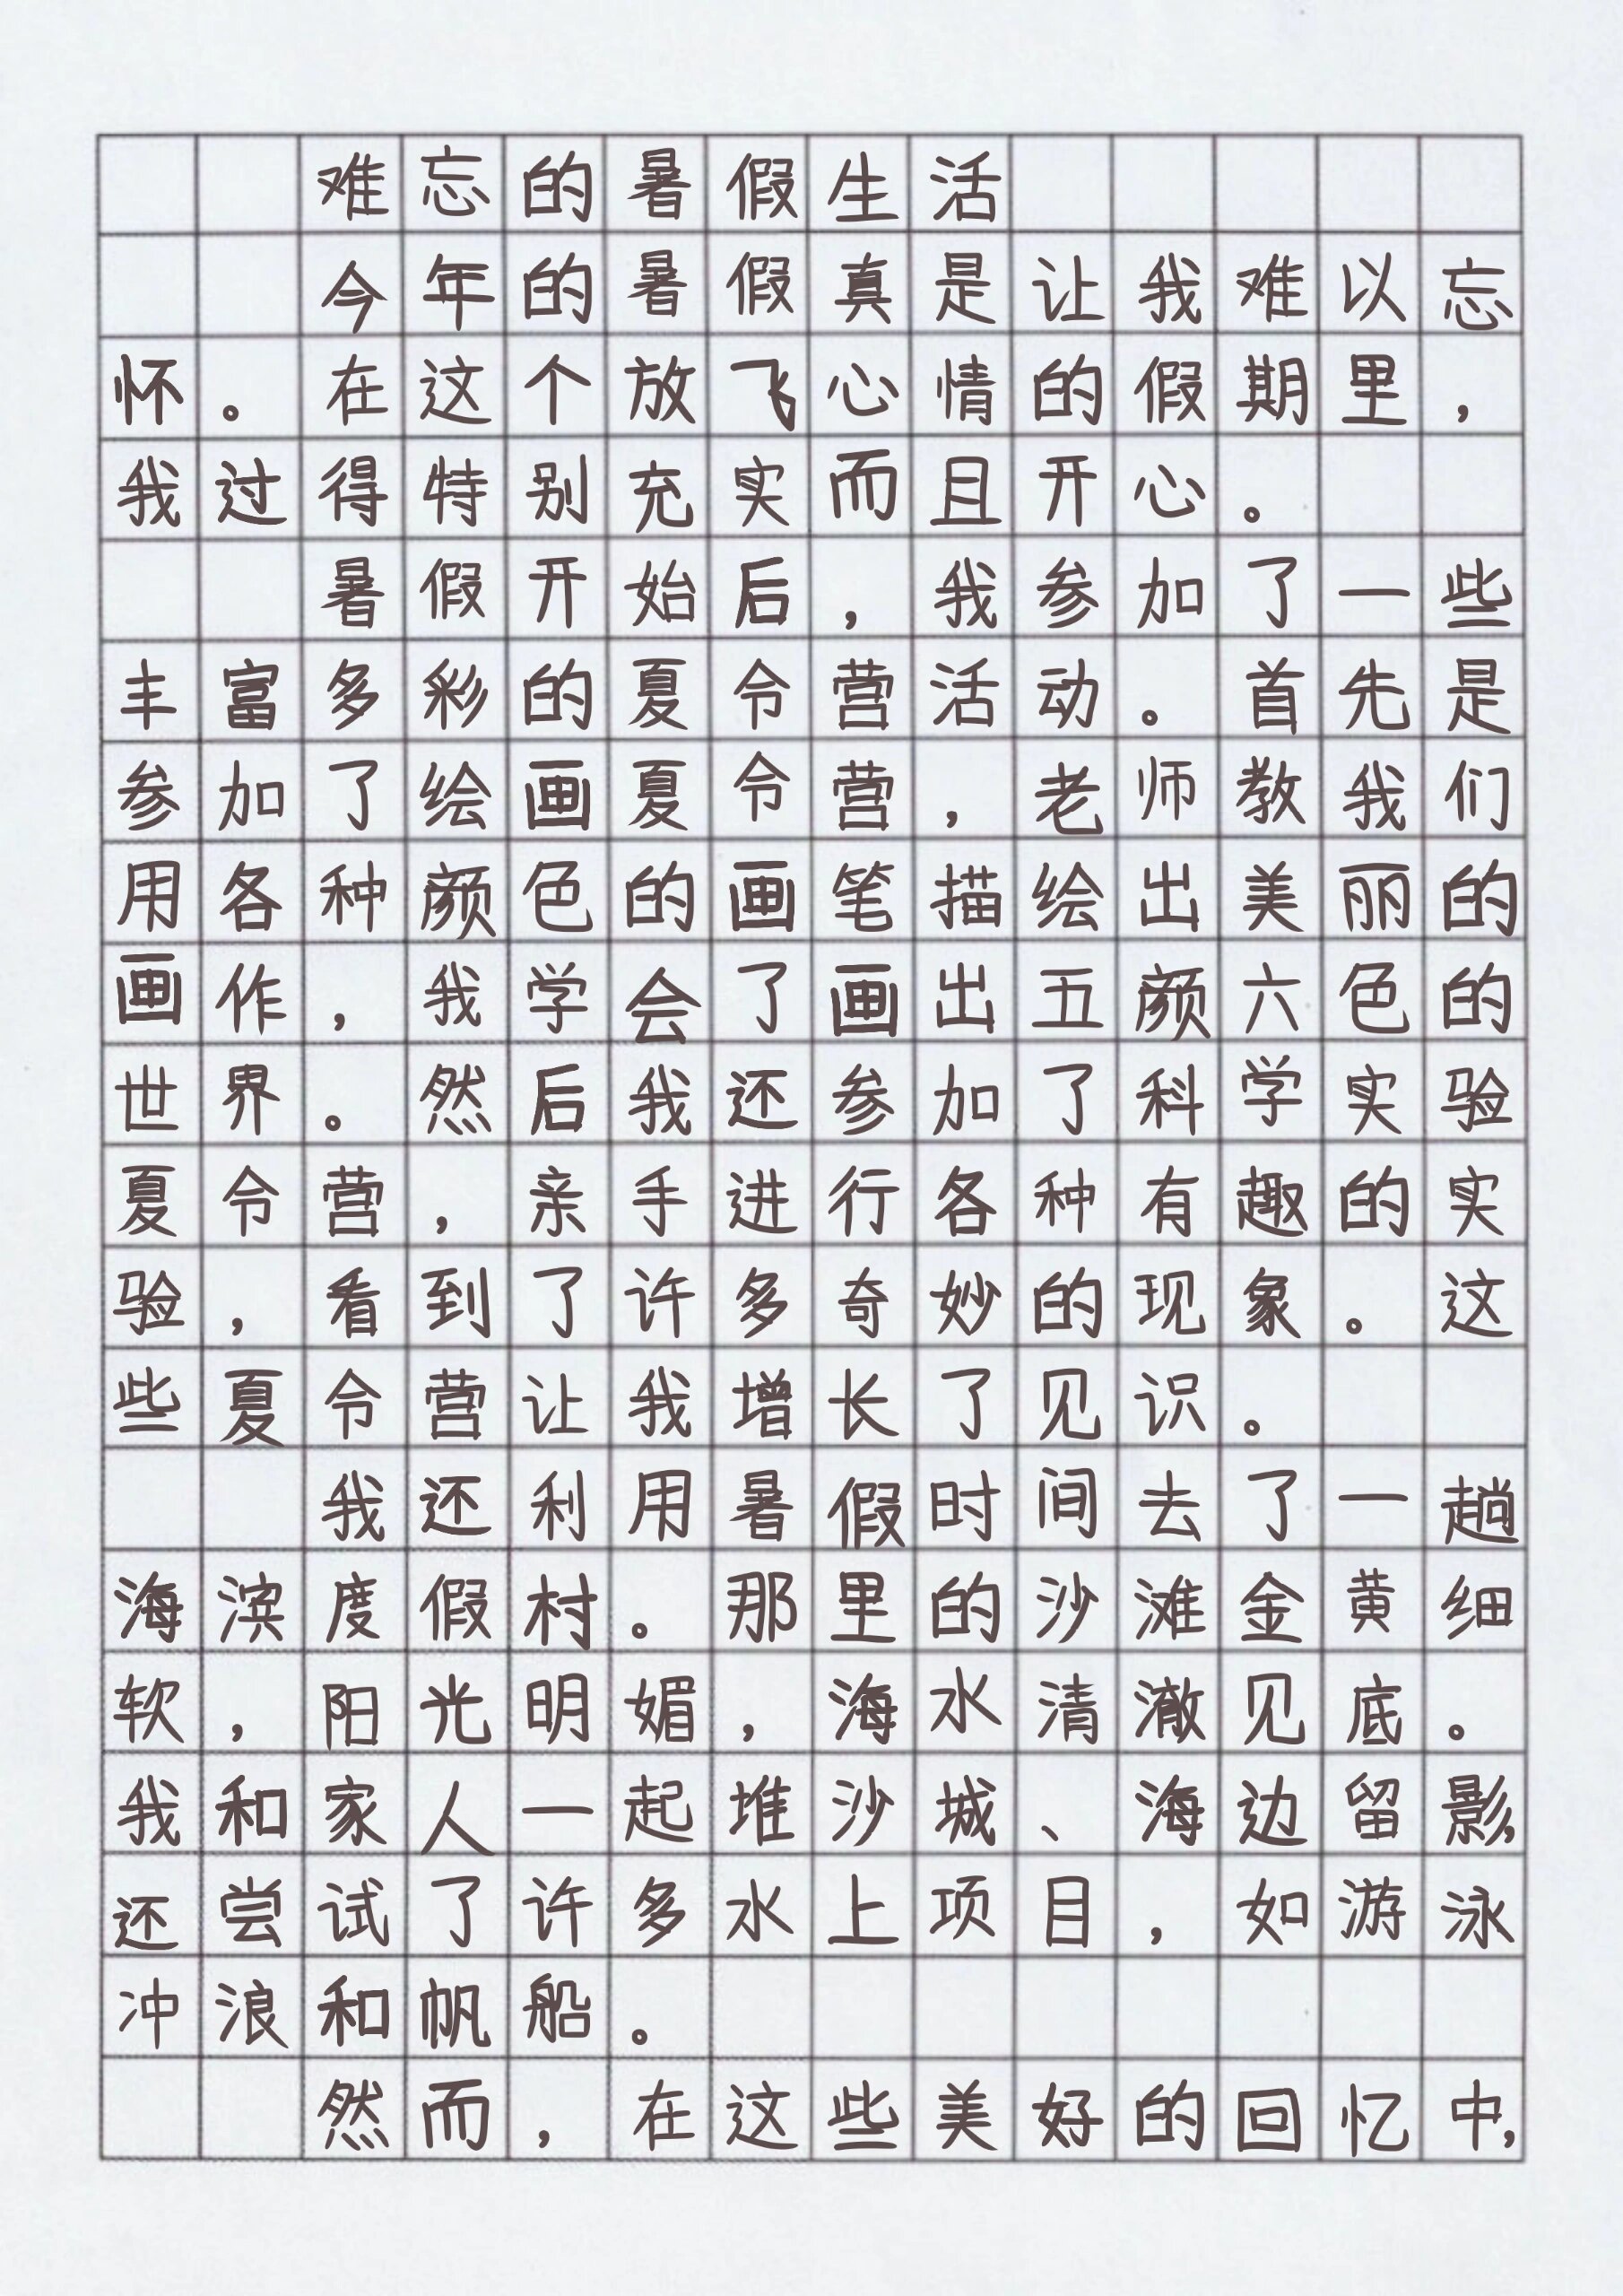 难忘的暑假生活
今年的暑假真是让我难以忘
怀。在这个放飞心情的假期里，
我过得特别充实而且开心。
暑假开始后，我参加了一些
丰富多彩的夏令营活动。首先是
参加了绘画夏令营，老师教我们
用各种颜色的画笔描绘出美丽的
画作，我学会了画出五颜六色的
世界。然后我还参加了科学实验
夏令营，亲手进行各种有趣的实
验，看到了许多奇妙的现象。这
些夏令营让我增长了见识。
我还利用暑假时间去了一趟
海滨度假村。那里的沙滩金黄细
软，阳光明媚，海水清澈见底。
我和家人一起堆沙城、海边留影，
还尝试了许多水上项目，如游泳
冲浪和帆船。
然而，在这些美好的回忆中，